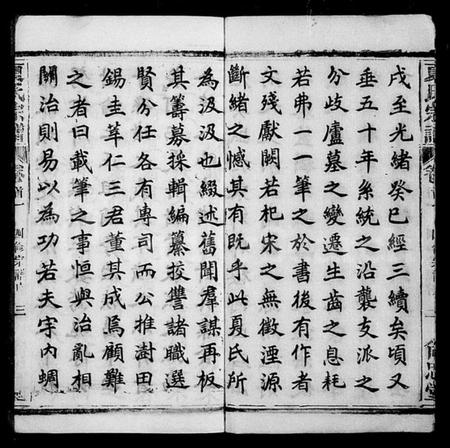 戊至光緒癸巳經三續矣頃又
垂五十年系統之沿襲支派之
分歧廬墓之變遷生齒之息耗
若弗一一筆之於書後有作者
文殘獻闕若杞宋之無徵湮源
斷緒之憾其有既乎此夏氏所
為汲汲也綴述舊聞羣謀再板
其籌募採輯編纂挍讐諸職選
賢分任各有專司而公推澍田
錫圭莘仁三君董其成焉顧難
之者曰載筆之事恒與治亂相
關治則易以為功若夫宇內蜩
夏氏宗譜
卷首一
三